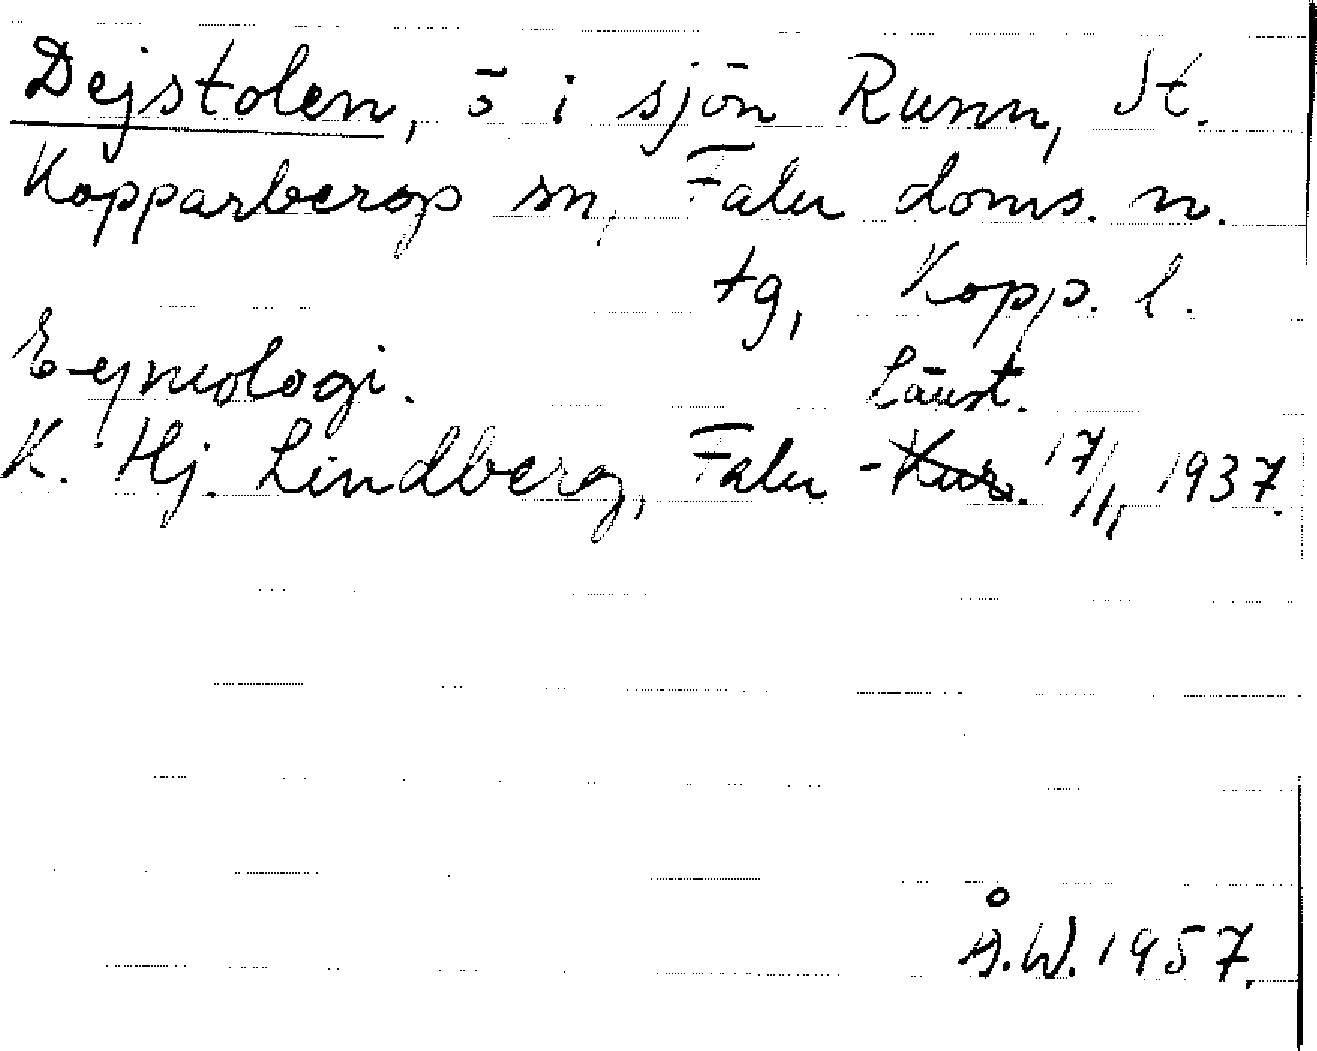 Dejstolen, ö i sjön Runn, St.
Kopparbergs sn, Falu doms. n.
tg, Kopp. l.
Etymologi.
K. Hj. Lindberg, Falu - Kur. 17/1, 1937.
Å.W. 1957.